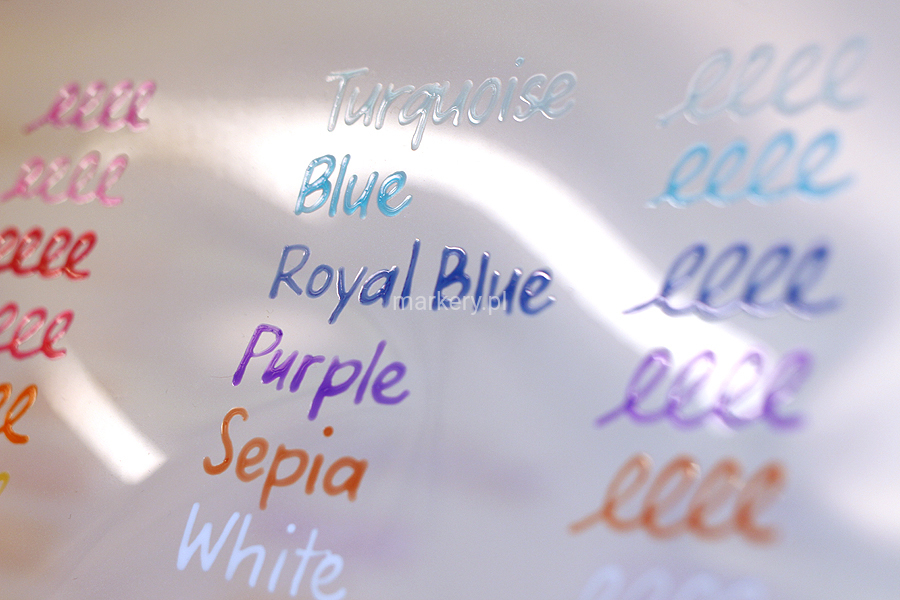 Turquoise
Blue
Royal Blue
markery.pl
Purple
Sepia
White